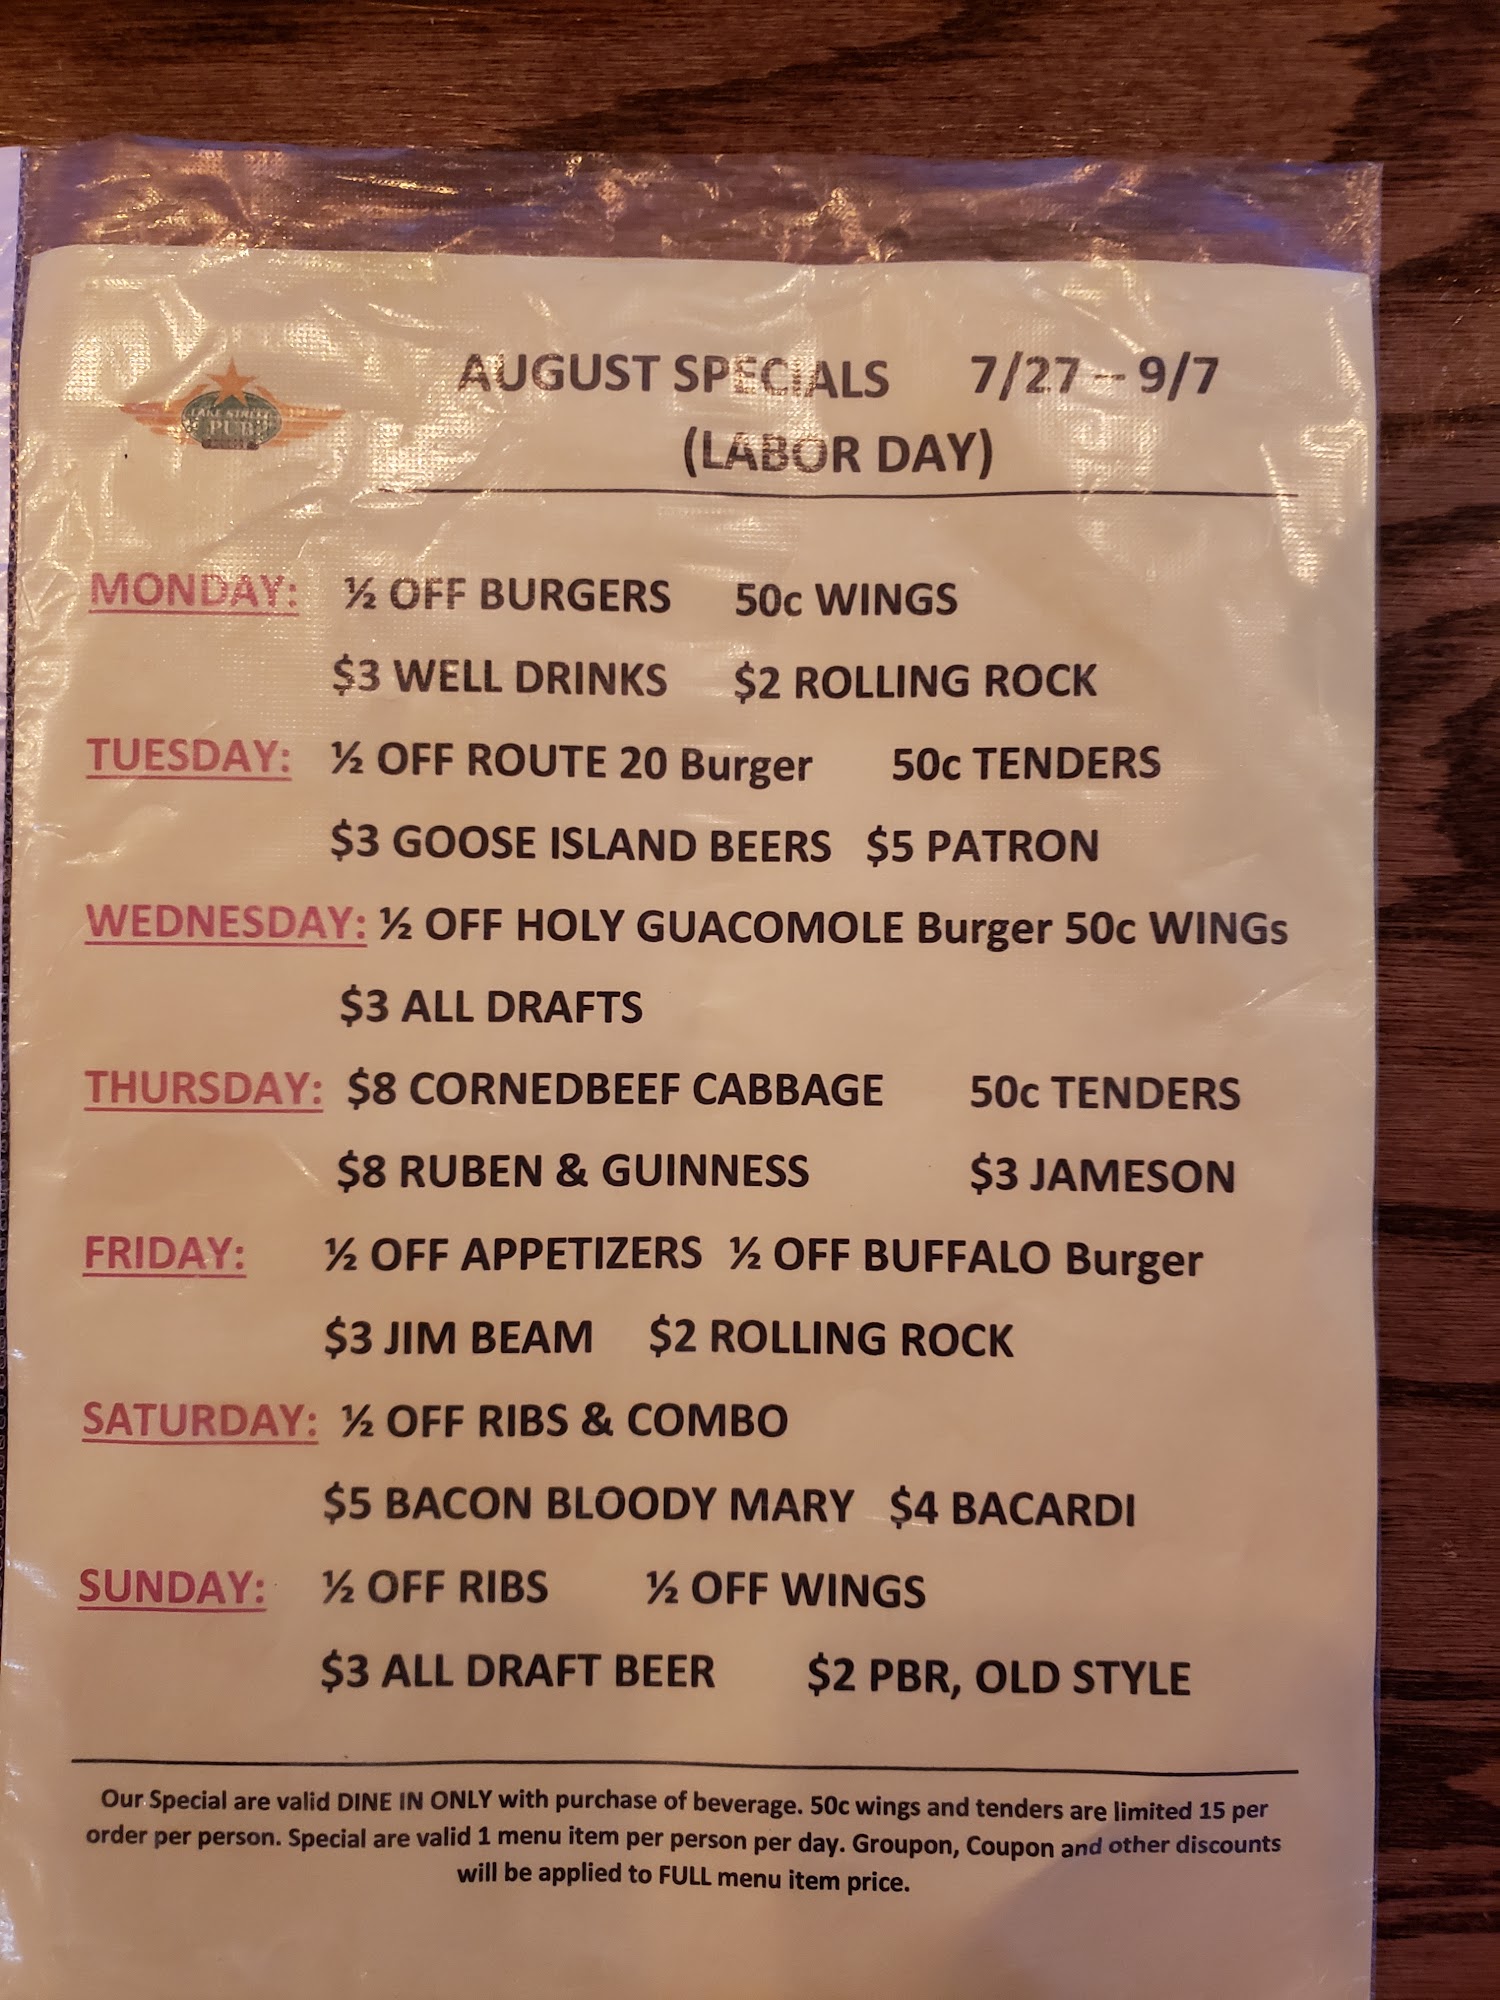 LAKE STREET
PUB
AUGUST SPECIALS 7/27 – 9/7
(LABOR DAY)
MONDAY: ½ OFF BURGERS 50c WINGS
$3 WELL DRINKS $2 ROLLING ROCK
TUESDAY: ½ OFF ROUTE 20 Burger 50c TENDERS
$3 GOOSE ISLAND BEERS $5 PATRON
WEDNESDAY: ½ OFF HOLY GUACOMOLE Burger 50c WINGs
$3 ALL DRAFTS
THURSDAY: $8 CORNEDBEEF CABBAGE 50c TENDERS
$8 RUBEN & GUINNESS $3 JAMESON
FRIDAY: ½ OFF APPETIZERS ½ OFF BUFFALO Burger
$3 JIM BEAM $2 ROLLING ROCK
SATURDAY: ½ OFF RIBS & COMBO
$5 BACON BLOODY MARY $4 BACARDI
SUNDAY: ½ OFF RIBS ½ OFF WINGS
$3 ALL DRAFT BEER $2 PBR, OLD STYLE
Our Special are valid DINE IN ONLY with purchase of beverage. 50c wings and tenders are limited 15 per
order per person. Special are valid 1 menu item per person per day. Groupon, Coupon and other discounts
will be applied to FULL menu item price.